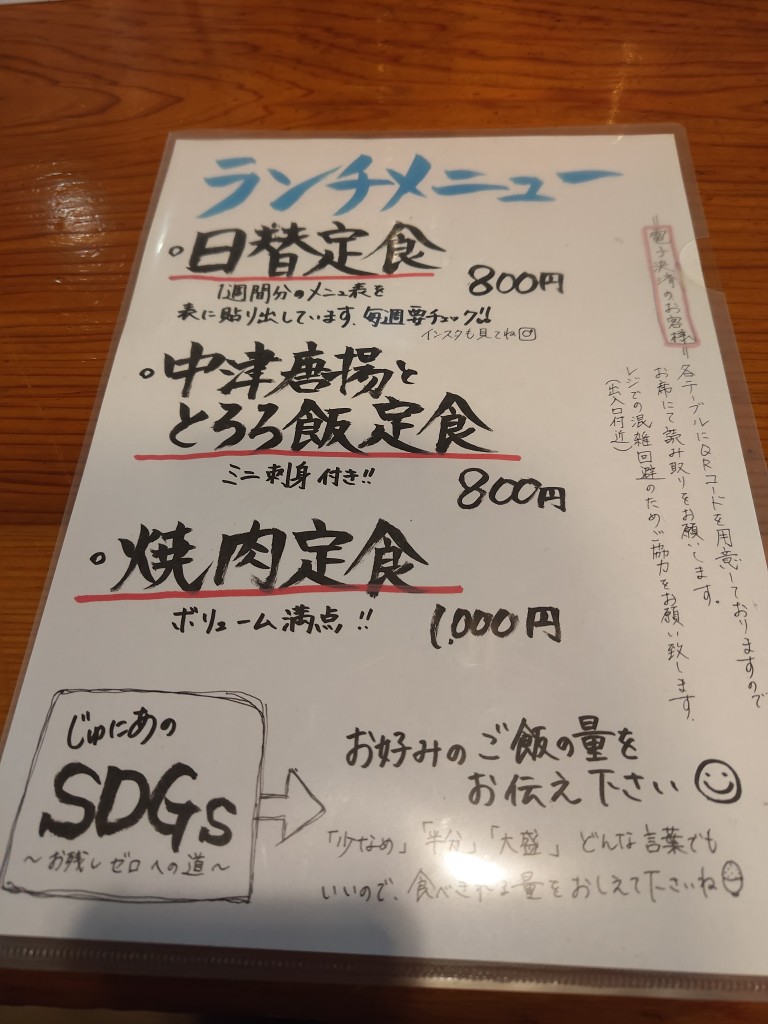 ランチメニュー
。日替定食
800円
1週間分のメニュ表を
表に貼り出しています。毎週要チェック!!
インスタも見てね
。中津唐揚と
とろろ飯定食
ミニ刺身付き!!
800円
。焼肉定食
ボリューム満点!!
1,000円
=電子決済のお客様=
各テーブルにQRコードを用意しておりますので
お席にて読み取りをお願いします。
レジでの混雑回避のためご協力をお願い致します。
(出入口付近)
じゅにあの
SDGs
～お残しゼロへの道～
お好みのご飯の量を
お伝え下さい
「少なめ」「半分」「大盛」どんな言葉でも
いいので、食べきれる量をおしえて下さいね